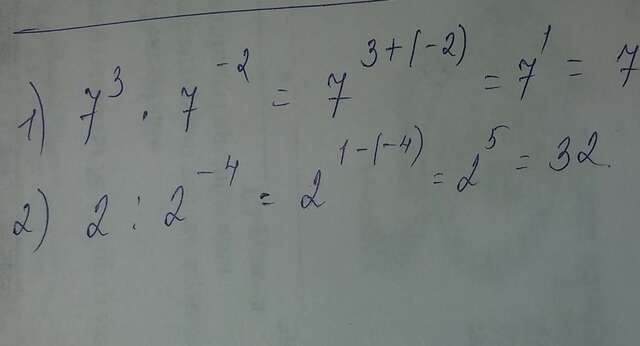 1) 7³ · 7⁻² = 7³⁺⁽⁻²⁾ = 7¹ = 7
2) 2 : 2⁻⁴ = 2¹⁻⁽⁻⁴⁾ = 2⁵ = 32.